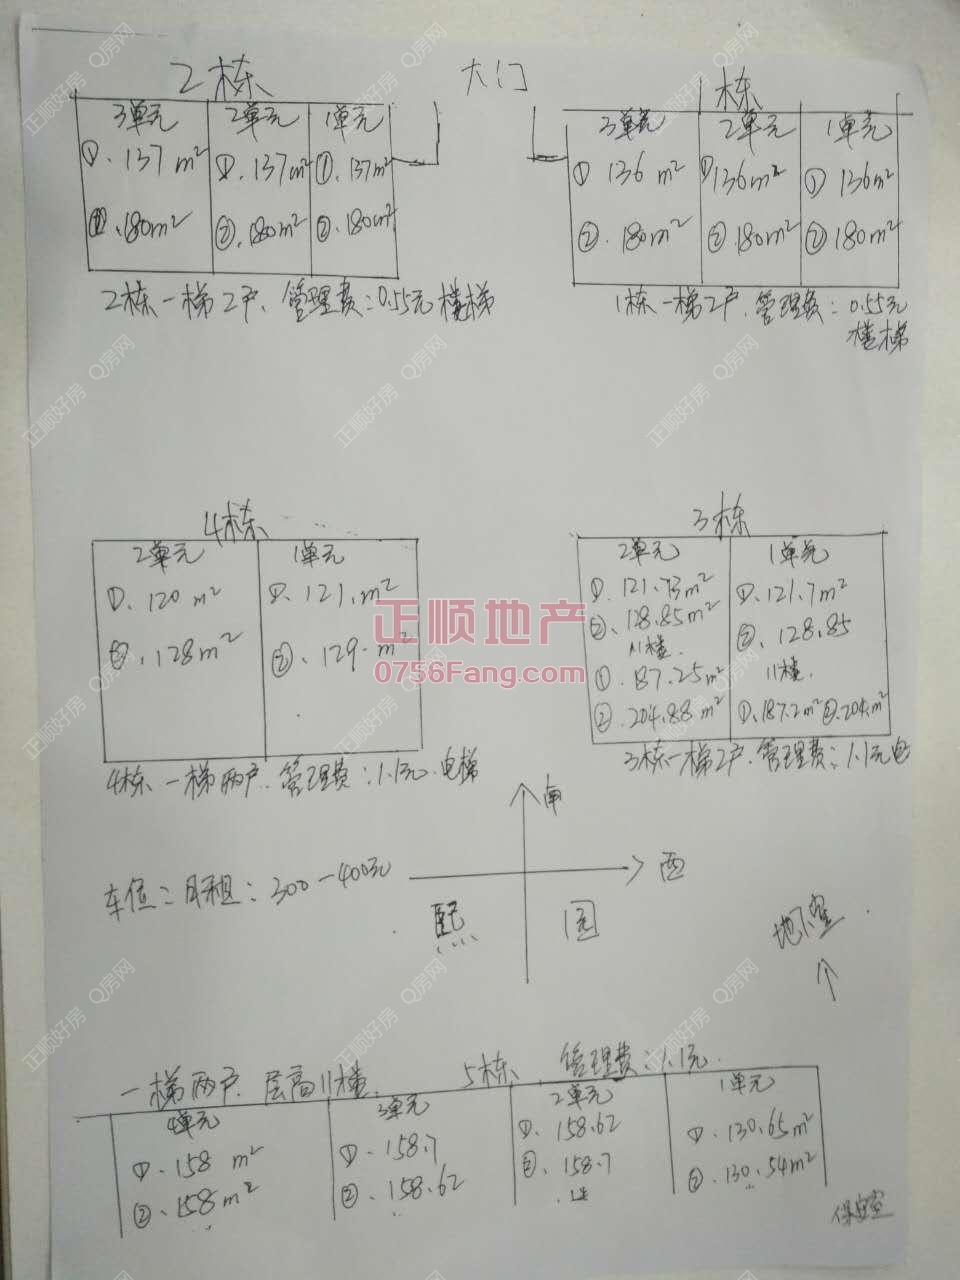 2栋
大门
1栋
3单元 2单元 1单元
①.137m² ①.137m² ①.137m²
②.180m² ②.180m² ②.180m²
2栋一梯2户.管理费:0.55元楼梯
3单元 2单元 1单元
① 136m² ① 136m² ① 136m²
②.180m² ②180m² ②180m²
1栋一梯2户.管理费:0.55元
楼梯
4栋
2单元 1单元
①、120m² ①、121.m²
②、128m² ②、129.m²
4栋一梯两户.管理费:1.1元.电梯
3栋
2单元 1单元
①、121.73m² ①、121.7m²
②、128.85m² ②、128.85
11楼. 11楼.
①.187.25m²
②.204.88m² ①、187.2m²②.204.m²
3栋一梯2户.管理费:1.1元电
南
西
车位:月租:300-400元
熙 园
地下室
一梯两户.层高11楼. 5栋 管理费:1.1元.
4单元 3单元 2单元 1单元
①.158m² ①.158.7 ①.158.62 ①.130.65m²
②.158m² ②.158.62 ②.158.7 ②.130.54m²
保安室
正顺地产
0756Fang.com
正顺好房 Q房网